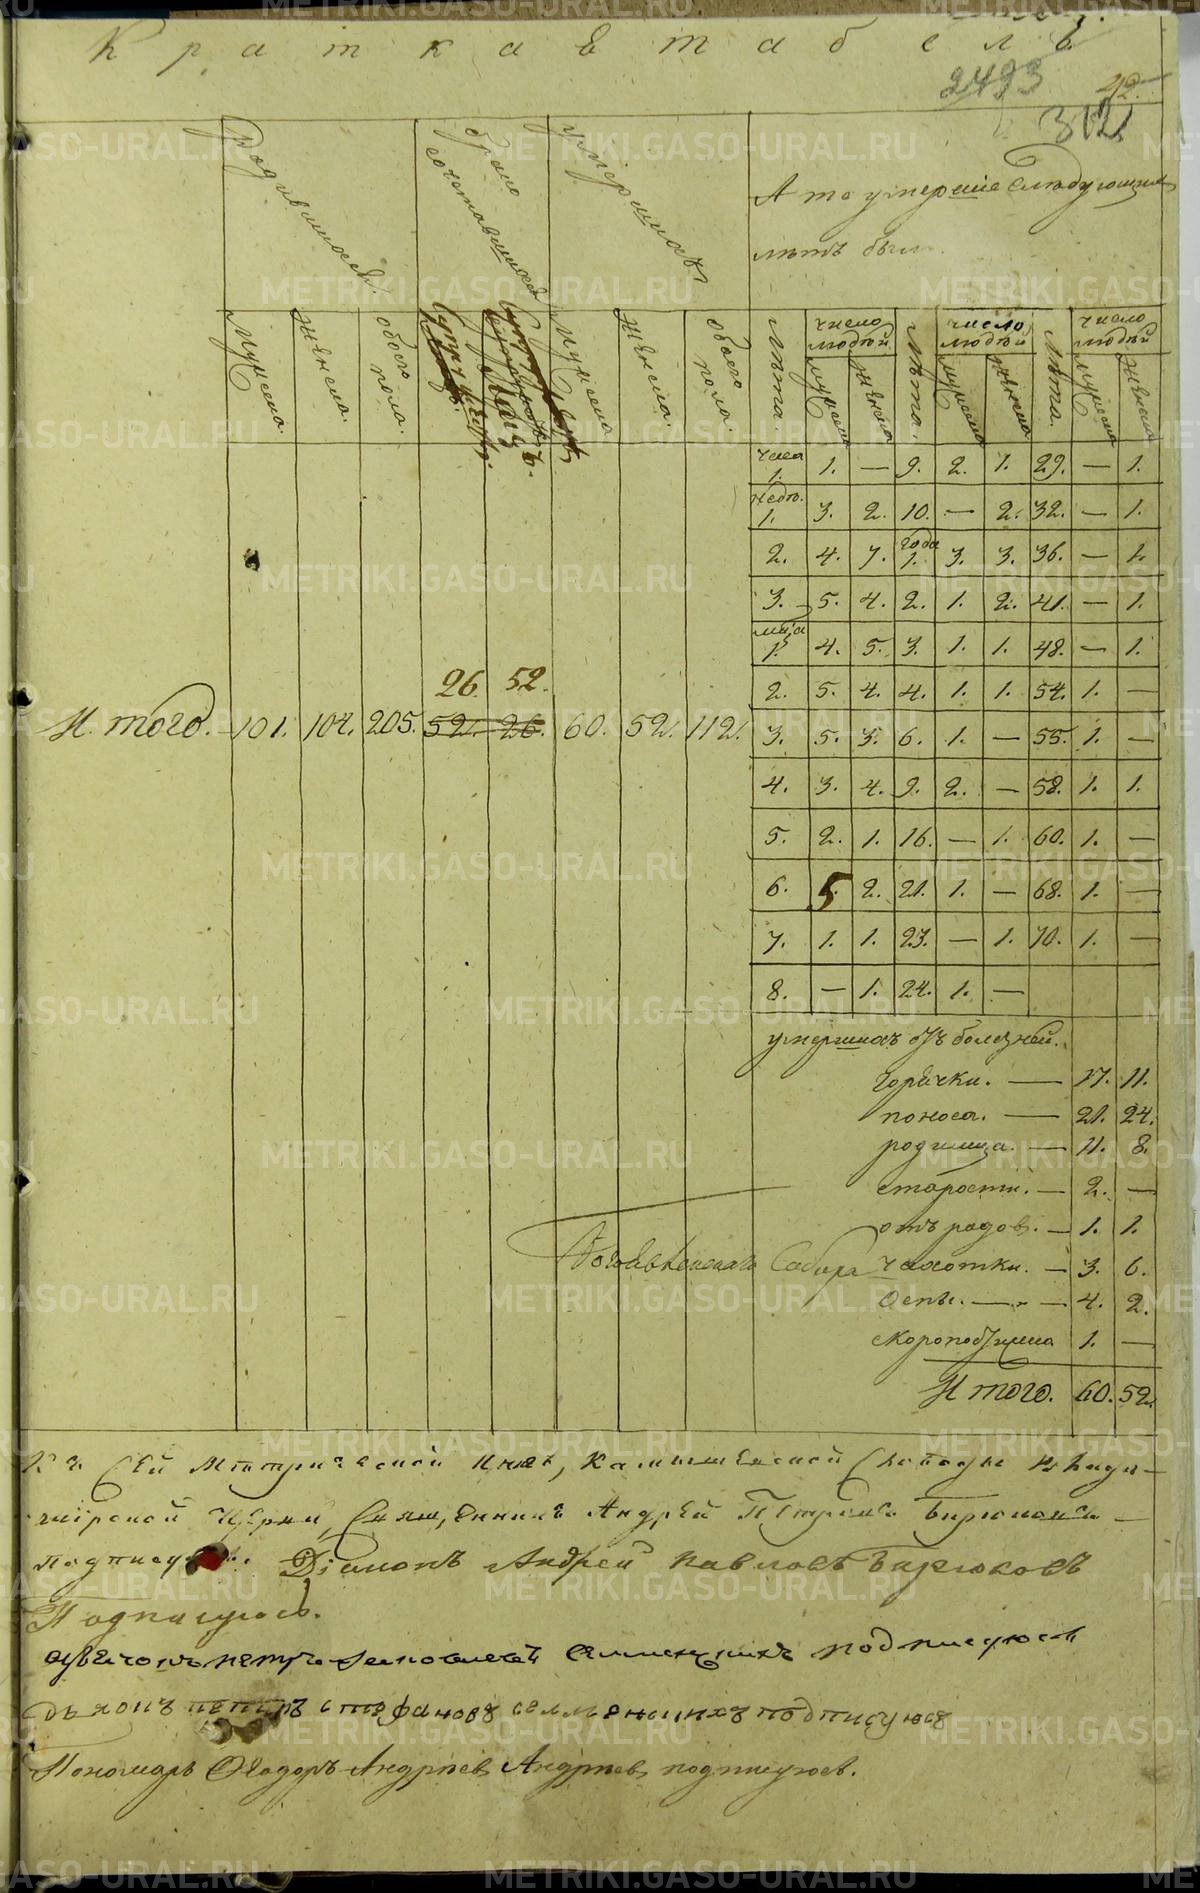 Краткая табель
2423
42
312
родившихся.
брако сочетавшихся
умершихъ
А те умершие следующихъ
летъ были.
мужеска.
женска.
обоего пола.
мужеска
женска.
обоего пола.
Лѣта.
число людей
мужеска
женска
Лѣта.
число людей
мужеска
женска
Лѣта.
число людей
мужеска
женска
часа 1. 1. — 9. 2. 1. 29. — 1.
недѣ. 1. 3. 2. 10. — 2. 32. — 1.
2. 4. 7. года 1. 3. 3. 36. — 1.
3. 5. 4. 2. 1. 2. 41. — 1.
мца 1. 4. 5. 3. 1. 1. 48. — 1.
2. 5. 4. 4. 1. 1. 54. 1. —
26. 52.
Итого. 101. 104. 205. 52. 26. 60. 52. 112.
3. 5. 3. 6. 1. — 55. 1. —
4. 3. 4. 9. 2. — 58. 1. 1.
5. 2. 1. 16. — 1. 60. 1. —
6. 5 2. 21. 1. — 68. 1. —
7. 1. 1. 23. — 1. 70. 1. —
8. — 1. 24. 1. —
умершихъ отъ болезней.
горячки. — 17. 11.
поноса. — 21. 24.
родимца. — 11. 8.
старости. — 2. —
отъ родов. — 1. 1.
Богоявленскаго Собора
чахотки. — 3. 6.
оспы. — 4. 2.
скоропостижно 1. —
Итого. 60. 52.
Къ сей Метрической книге, Камышевской слободы
церкви, Священникъ Андрей Петровъ Бирюковъ
подписуюсь. Диаконъ Андрей Павловъ Бирюковъ
Подписуюсь.
петръ подписуюсь
дьяконъ петръ стефановъ подписуюсь
Пономарь Феодоръ Андреев Андреев подписуюсь.
METRIKI.GASO-URAL.RU